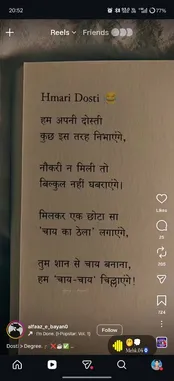 20:52
77%
Reels
Friends
Hmari Dosti 😂
हम अपनी दोस्ती
कुछ इस तरह निभाएंगे,
नौकरी न मिली तो
बिल्कुल नहीं घबराएंगे।
मिलकर एक छोटा सा
'चाय का ठेला' लगाएंगे,
तुम शान से चाय बनाना,
हम 'चाय-चाय' चिल्लाएंगे!
Likes
724
alfaaz_e_bayan0
Follow
I'm Done. (I-Popstar: Vol. 1)
Dosti > Degree.